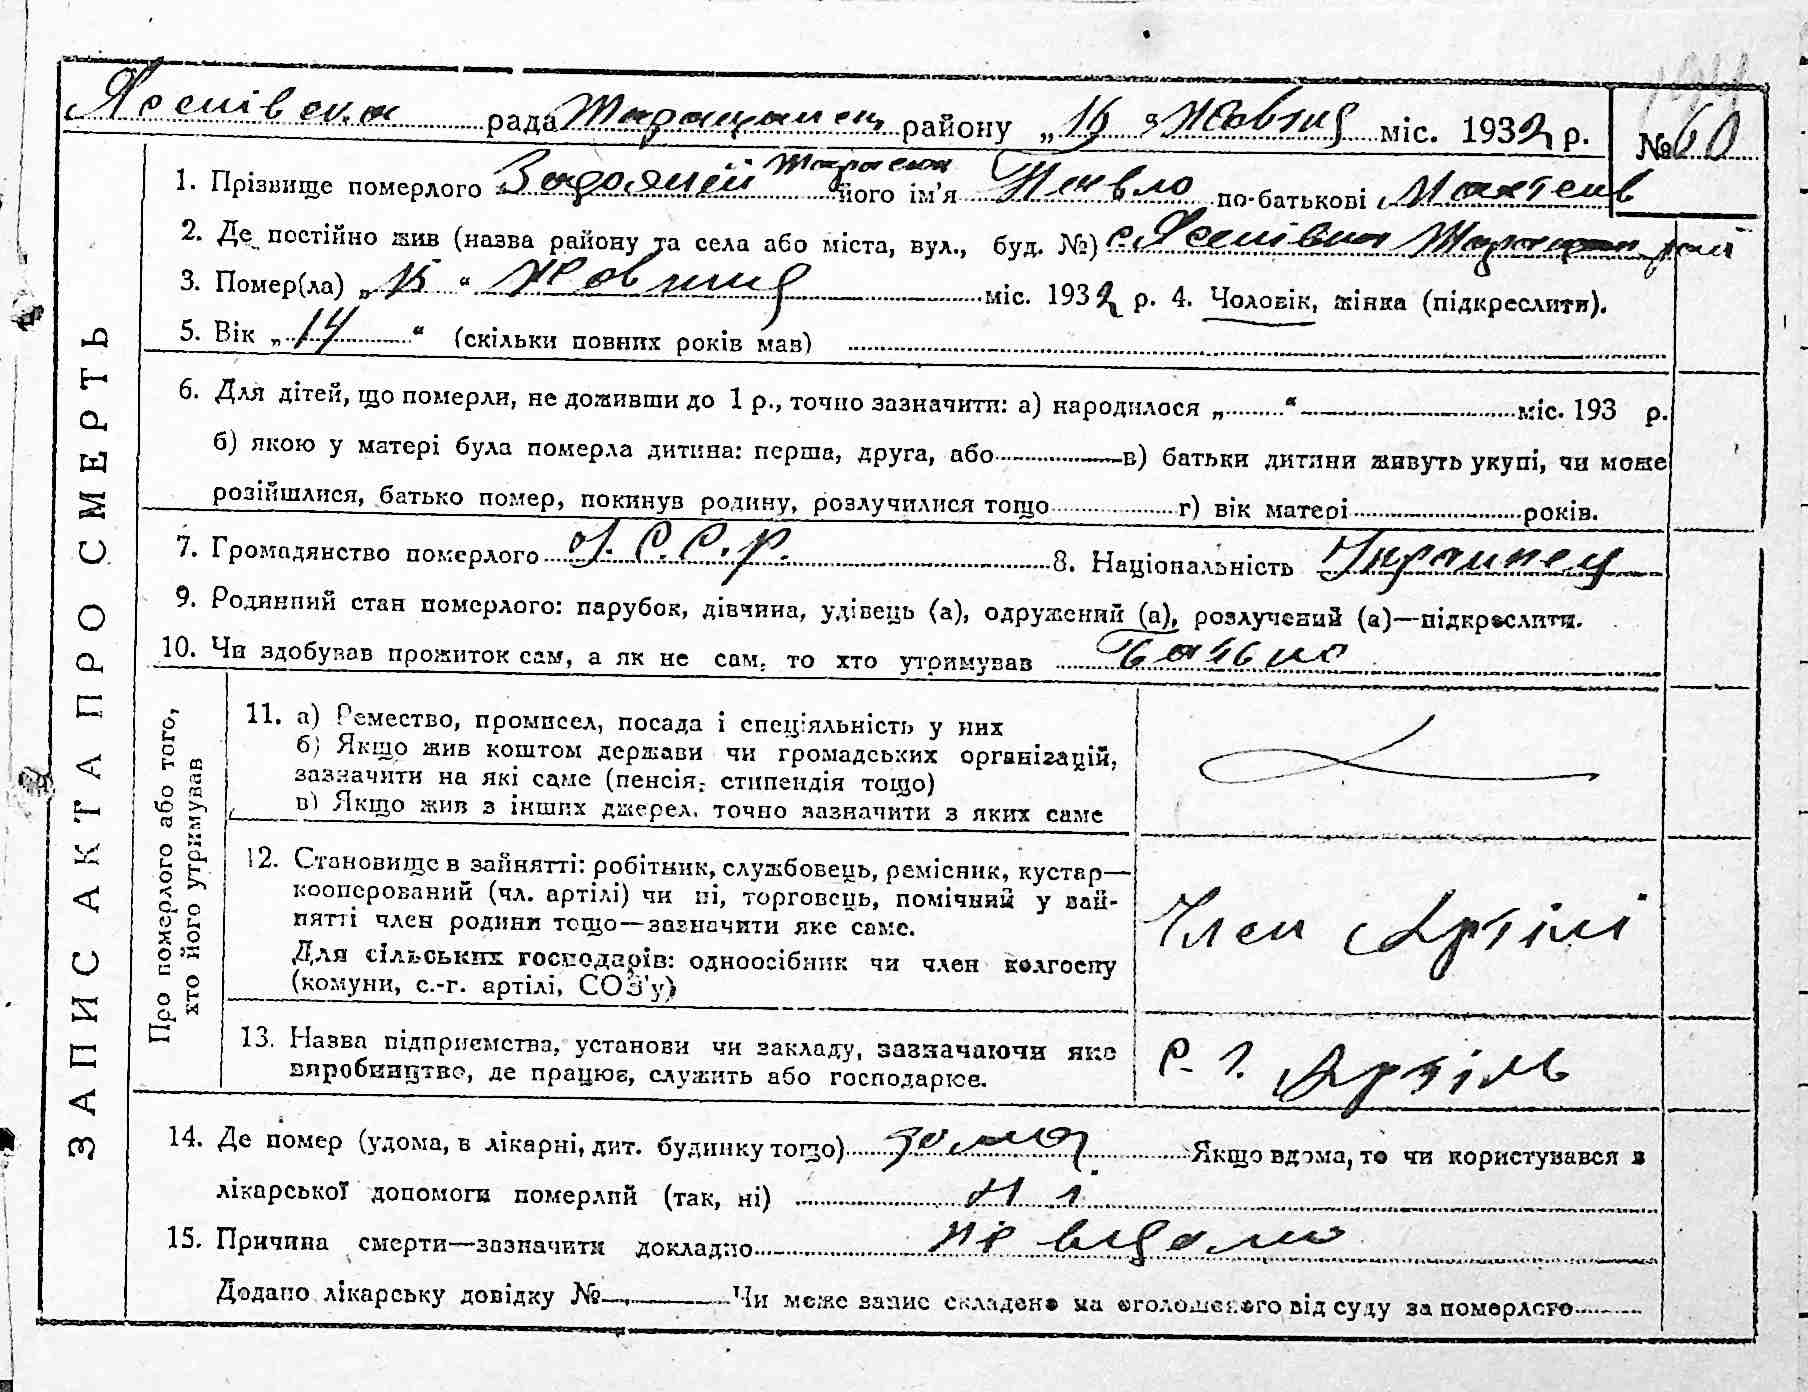 ЗАПИС АКТА ПРО СМЕРТЬ
рада району „16“ Жовтня міс. 1932 р. № 60
1. Прізвище померлого його ім'я Павло по-батькові
2. Де постійно жив (назва району та села або міста, вул., буд. №) с.
3. Помер(ла) „ “ Жовтня міс. 1932 р. 4. Чоловік, жінка (підкреслити).
5. Вік „14“ (скільки повних років мав)
6. Для дітей, що померли, не доживши до 1 р., точно зазначити: а) народилося „ “ міс. 193 р.
б) якою у матері була померла дитина: перша, друга, або в) батьки дитини живуть укупі, чи може
розійшлися, батько помер, покинув родину, розлучилися тощо г) вік матері років.
7. Громадянство померлого У.С.С.Р. 8. Національність Украинец
9. Родинний стан померлого: парубок, дівчина, удівець (а), одружений (а), розлучений (а)—підкреслити.
10. Чи здобував прожиток сам, а як не сам, то хто утримував Батько
Про померлого або того,
хто його утримував
11. а) Ремество, промисел, посада і спеціяльність у них
б) Якщо жив коштом держави чи громадських організацій,
зазначити на які саме (пенсія, стипендія тощо)
в) Якщо жив з інших джерел, точно зазначити з яких саме
12. Становище в зайнятті: робітник, службовець, ремісник, кустар—
кооперований (чл. артілі) чи ні, торговець, помічний у зай-
нятті член родини тощо—зазначити яке саме.
Для сільських господарів: одноосібник чи член колгоспу
(комуни, с.-г. артілі, СОЗ'у)
Член Артілі
13. Назва підприємства, установи чи закладу, зазначаючи яке
виробництво, де працює, служить або господарює.
С. Г. Артіль
14. Де помер (удома, в лікарні, дит. будинку тощо) дома Якщо вдома, то чи користувався з
лікарської допомоги померлий (так, ні) ні
15. Причина смерти—зазначити докладно не відомо
Додано лікарську довідку № Чи може запис складено на оголошеного від суду за померлого